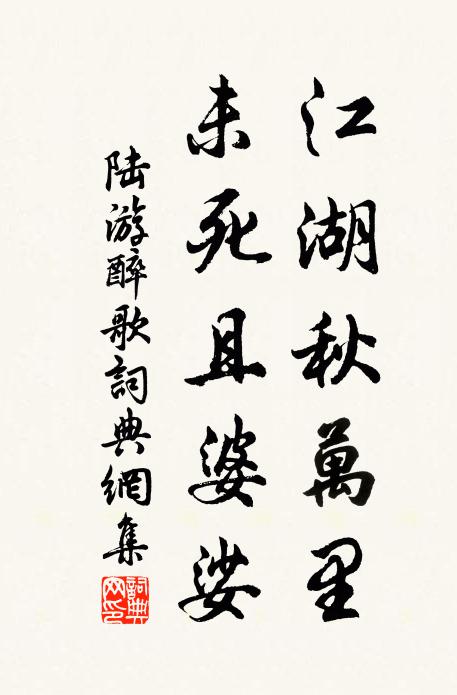 江湖秋萬里
未死且婆娑
陆游醉歌詞典網集
詞典网印